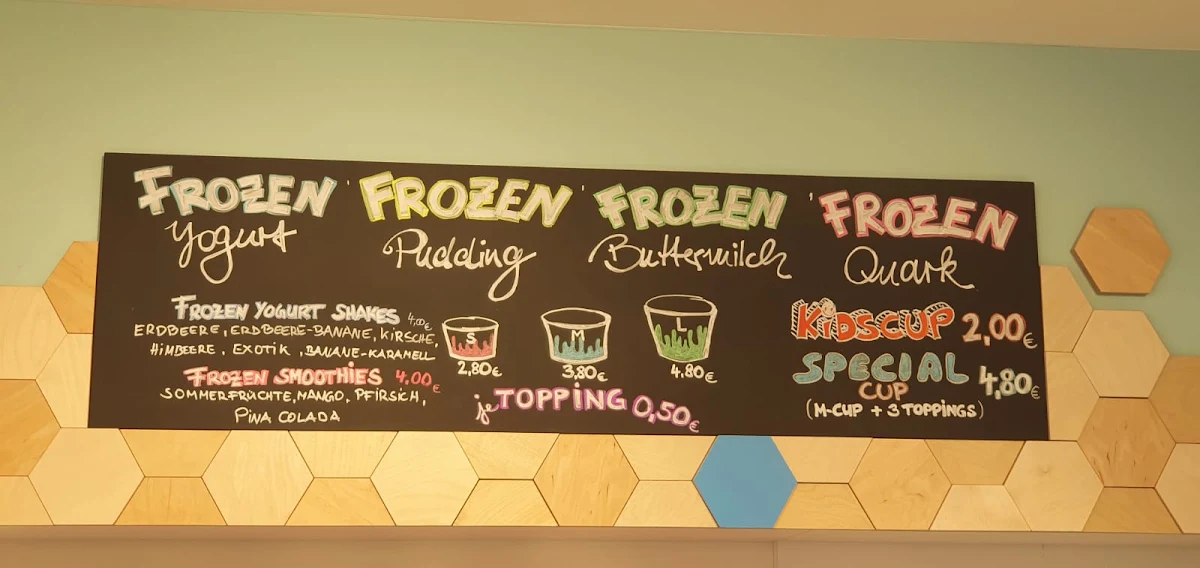 FROZEN
Yogurt
FROZEN
Pudding
FROZEN
Buttermilch
FROZEN
Quark
FROZEN YOGURT SHAKES 4,00€
ERDBEERE, ERDBEERE-BANANE, KIRSCHE,
HIMBEERE, EXOTIK, BANANE-KARAMELL
FROZEN SMOOTHIES 4,00€
SOMMERFRÜCHTE, MANGO, PFIRSICH,
PINA COLADA
S
2,80€
M
3,80€
L
4,80€
je TOPPING 0,50€
KIDSCUP 2,00€
SPECIAL
CUP 4,80€
(M-CUP + 3 TOPPINGS)